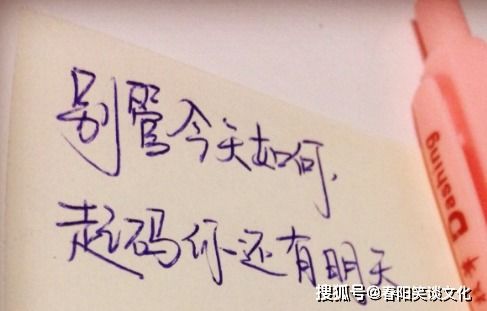 别管今天如何,
起码你还有明天
Dashing
搜狐号@春阳笑谈文化